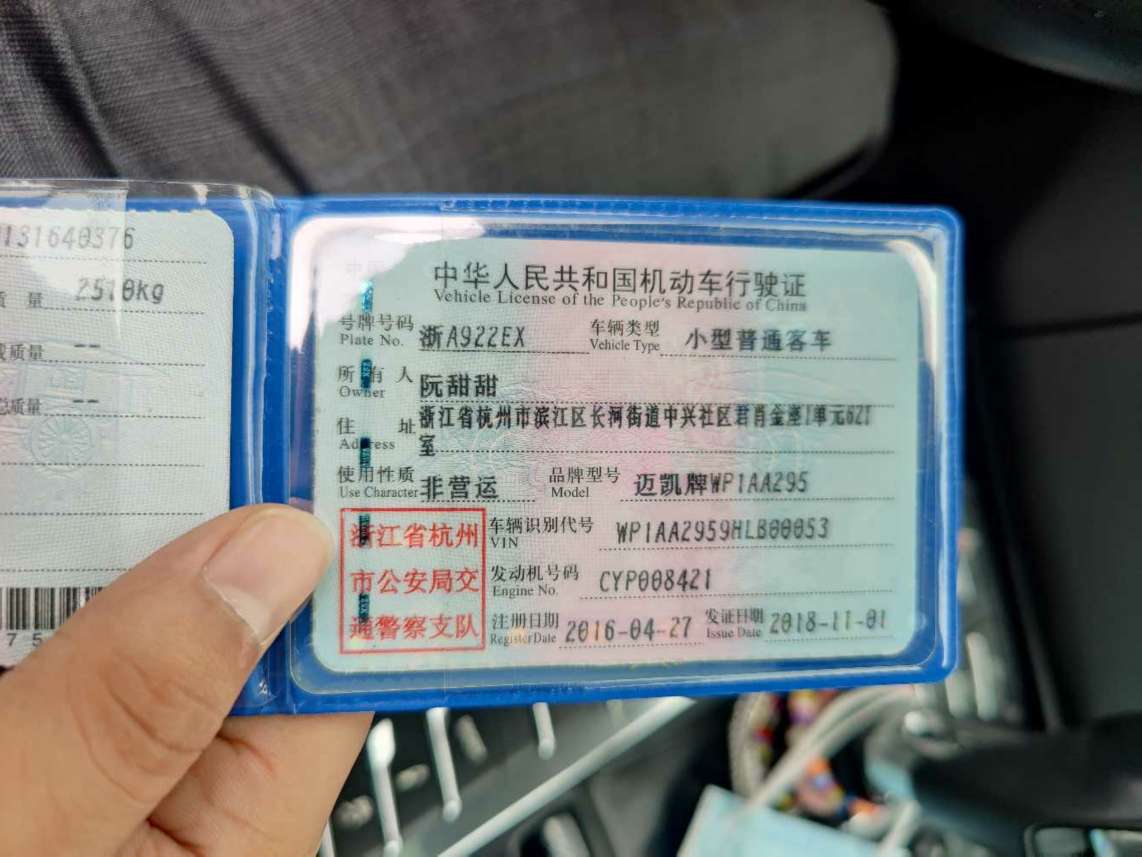 131640376
质 量 2510kg
质量 --
总质量 --
75
中华人民共和国机动车行驶证
Vehicle License of the People's Republic of China
号牌号码 浙A922EX 车辆类型 小型普通客车
Plate No. Vehicle Type
所有人 阮甜甜
Owner
住 址 浙江省杭州市滨江区长河街道中兴社区君肖金座1单元621
Address 室
使用性质 非营运 品牌型号 迈凯牌WP1AA295
Use Character Model
浙江省杭州 车辆识别代号 WP1AA2959HLB00053
VIN
市公安局交 发动机号码 CYP008421
Engine No.
通警察支队 注册日期 2016-04-27 发证日期 2018-11-01
Register Date Issue Date